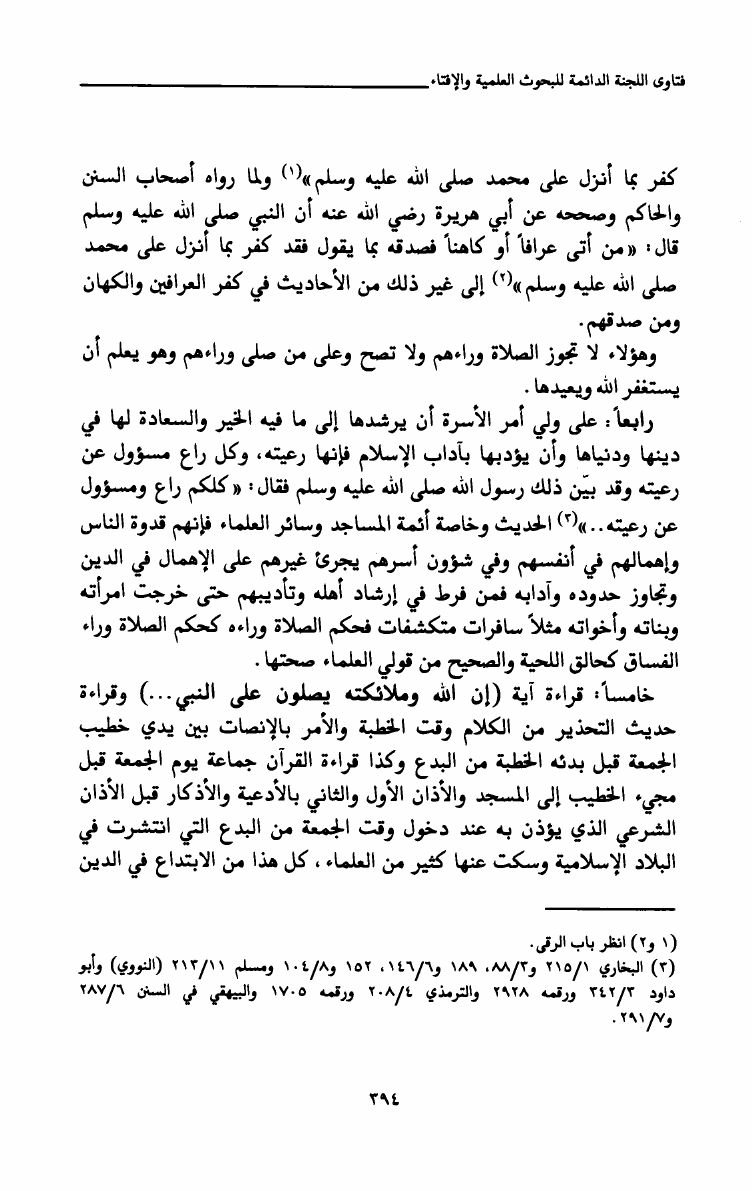 فتاوى اللجنة الدائمة للبحوث العلمية والإفتاء
كفر بما أنزل على محمد صلى الله عليه وسلم»(١) ولما رواه أصحاب السنن
والحاكم وصححه عن أبي هريرة رضي الله عنه أن النبي صلى الله عليه وسلم
قال: «من أتى عرافاً أو كاهناً فصدقه بما يقول فقد كفر بما أنزل على محمد
صلى الله عليه وسلم»(٢) إلى غير ذلك من الأحاديث في كفر العرافين والكهان
ومن صدقهم.
وهؤلاء لا تجوز الصلاة وراءهم ولا تصح وعلى من صلى وراءهم وهو يعلم أن
يستغفر الله ويعيدها.
رابعاً: على ولي أمر الأسرة أن يرشدها إلى ما فيه الخير والسعادة لها في
دينها ودنياها وأن يؤدبها بآداب الإسلام فإنها رعيته، وكل راع مسؤول عن
رعيته وقد بيّن ذلك رسول الله صلى الله عليه وسلم فقال: «كلكم راع ومسؤول
عن رعيته..»(٣) الحديث وخاصة أئمة المساجد وسائر العلماء فإنهم قدوة الناس
وإهمالهم في أنفسهم وفي شؤون أسرهم يجرئ غيرهم على الإهمال في الدين
وتجاوز حدوده وآدابه فمن فرط في إرشاد أهله وتأديبهم حتى خرجت امرأته
وبناته وأخواته مثلاً سافرات متكشفات فحكم الصلاة وراءه كحكم الصلاة وراء
الفساق كحالق اللحية والصحيح من قولي العلماء صحتها.
خامساً: قراءة آية (إن الله وملائكته يصلون على النبي...) وقراءة
حديث التحذير من الكلام وقت الخطبة والأمر بالإنصات بين يدي خطيب
الجمعة قبل بدئه الخطبة من البدع وكذا قراءة القرآن جماعة يوم الجمعة قبل
مجيء الخطيب إلى المسجد والأذان الأول والثاني بالأدعية والأذكار قبل الأذان
الشرعي الذي يؤذن به عند دخول وقت الجمعة من البدع التي انتشرت في
البلاد الإسلامية وسكت عنها كثير من العلماء، كل هذا من الابتداع في الدين
(١ و٢) انظر باب الرقى.
(٣) البخاري ٢١٥/١ و٨٨/٣، ١٨٩ و١٤٦/٦، ١٥٢ و١٠٤/٨ ومسلم ٢١٣/١١ (النووي) وأبو
داود ٣٤٢/٣ ورقمه ٢٩٢٨ والترمذي ٢٠٨/٤ ورقمه ١٧٠٥ والبيهقي في السنن ٢٨٧/٦
و٢٩١/٧.
٣٩٤